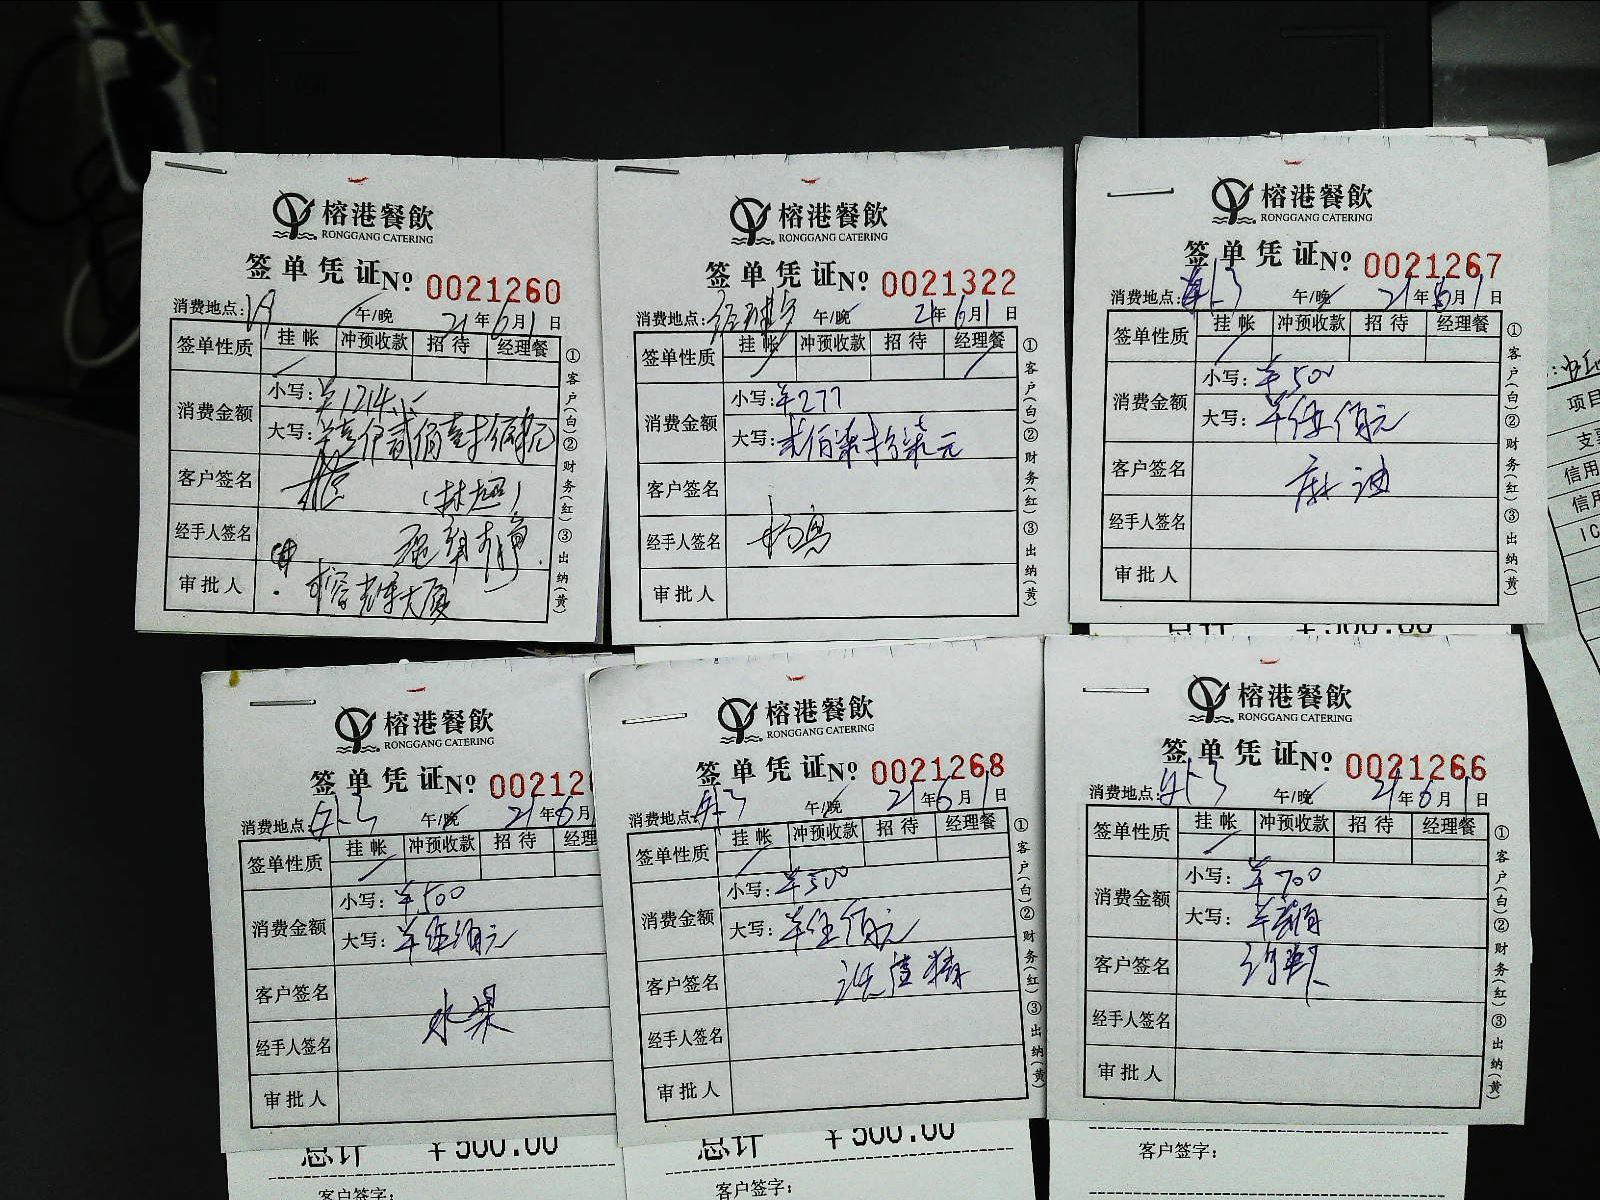 榕港餐飲
RONGGANG CATERING
签单凭证 No 0021260
消费地点: 午/晚 21年6月1日
签单性质 挂帐 冲预收款 招待 经理餐
消费金额 小写: ¥1214
大写:
客户签名 (林超)
经手人签名
审批人
①客户(白)②财务(红)③出纳(黄)
榕港餐飲
RONGGANG CATERING
签单凭证 No 0021322
消费地点: 午/晚 21年6月1日
签单性质 挂帐 冲预收款 招待 经理餐
消费金额 小写: ¥277
大写: 贰佰柒拾柒元
客户签名
经手人签名
审批人
①客户(白)②财务(红)③出纳(黄)
榕港餐飲
RONGGANG CATERING
签单凭证 No 0021267
消费地点: 午/晚 21年6月1日
签单性质 挂帐 冲预收款 招待 经理餐
消费金额 小写: ¥500
大写: 伍佰元
客户签名
经手人签名
审批人
①客户(白)②财务(红)③出纳(黄)
总计 ¥500.00
项目
信用
信用
IC
榕港餐飲
RONGGANG CATERING
签单凭证 No 00212
消费地点: 午/晚 21年6月
签单性质 挂帐 冲预收款 招待 经理
消费金额 小写: ¥500
大写: 伍佰元
客户签名
水果
经手人签名
审批人
总计 ¥500.00
客户签字:
榕港餐飲
RONGGANG CATERING
签单凭证 No 0021268
消费地点: 午/晚 21年6月1日
签单性质 挂帐 冲预收款 招待 经理餐
消费金额 小写: ¥500
大写: 伍佰元
客户签名
经手人签名
审批人
①客户(白)②财务(红)③出纳(黄)
总计 ¥500.00
客户签字:
榕港餐飲
RONGGANG CATERING
签单凭证 No 0021266
消费地点: 午/晚 21年6月1日
签单性质 挂帐 冲预收款 招待 经理餐
消费金额 小写: ¥700
大写:
客户签名
经手人签名
审批人
①客户(白)②财务(红)③出纳(黄)
客户签字: